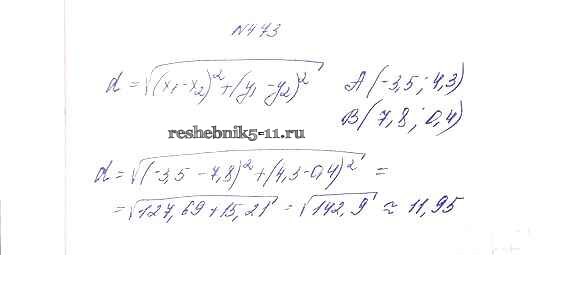 №473
d = √(x₁-x₂)²+(y₁-y₂)² A(-3,5; 4,3)
B(7,8; 0,4)
reshebnik5-11.ru
d = √(-3,5-7,8)²+(4,3-0,4)² =
= √127,69+15,21 = √142,9 ≈ 11,95